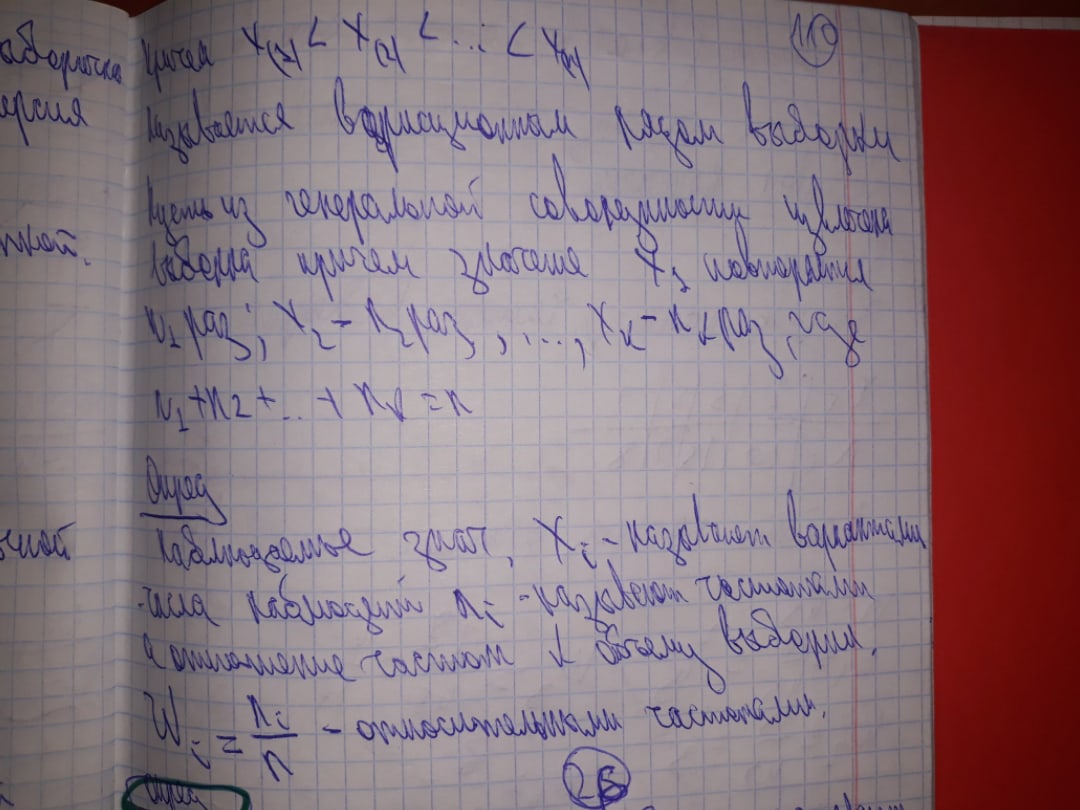 выборочка
ерсия
тной.
чной
причем X(1) < X(2) < ... < X(n)
110
называется вариационным рядом выборки
Пусть из генеральной совокупности извлечена
выборка причем значение X1 повторяется
n1 раз; X2 - n2 раз, , ..., Xk - nk раз, где
n1 + n2 + ... + nk = n
Опред
Наблюдаемые знач, Xi - называют вариантами
числа наблюдений ni - называют частотами
а отношение частот к объему выборки.
Wi = ni/n - относительными частотами.
26
Опред